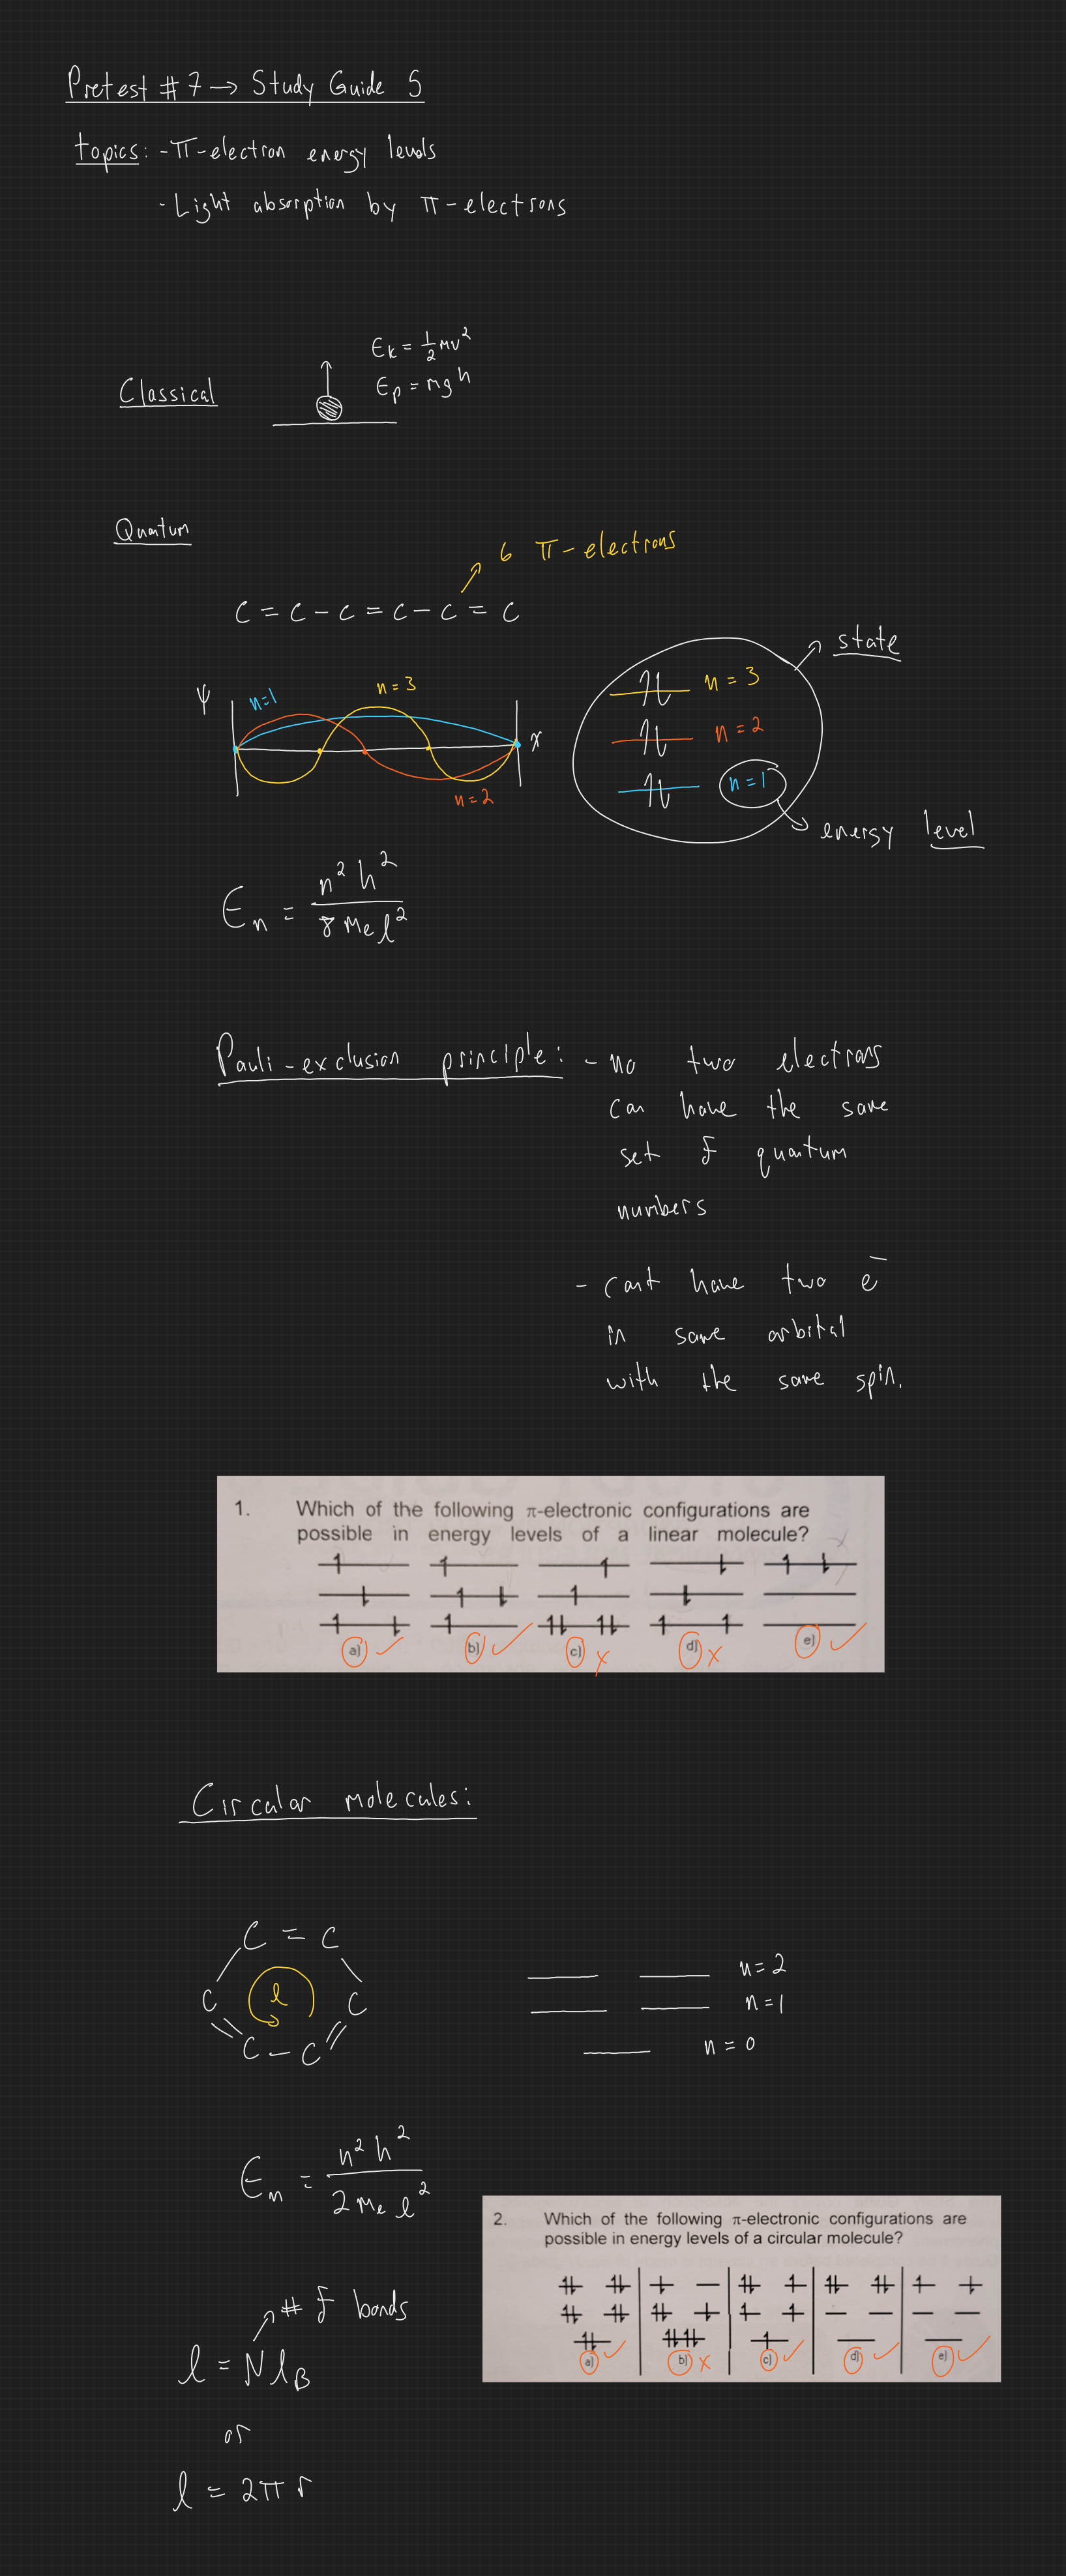 Pretest # 7 → Study Guide 5
topics: - π-electron energy levels
- Light absorption by π-electrons
Classical
E_k = 1/2 mv²
E_p = mgh
Quantum
6 π-electrons
C = C - C = C - C = C
ψ
n=1
n=3
n=2
x
state
n = 3
n = 2
n = 1
energy level
E_n = n²h² / 8 m_e l²
Pauli-exclusion principle: - no two electrons
can have the same
set of quantum
numbers
- cant have two e⁻
in same orbital
with the same spin.
1. Which of the following π-electronic configurations are
possible in energy levels of a linear molecule?
a) ✓ b) ✓ c) x d) x e) ✓
Circular molecules:
C = C
C l C
C - C
n = 2
n = 1
n = 0
E_n = n²h² / 2 m_e l²
2. Which of the following π-electronic configurations are
possible in energy levels of a circular molecule?
a) ✓ b) x c) ✓ d) ✓ e) ✓
# of bonds
l = N l_B
or
l = 2πr